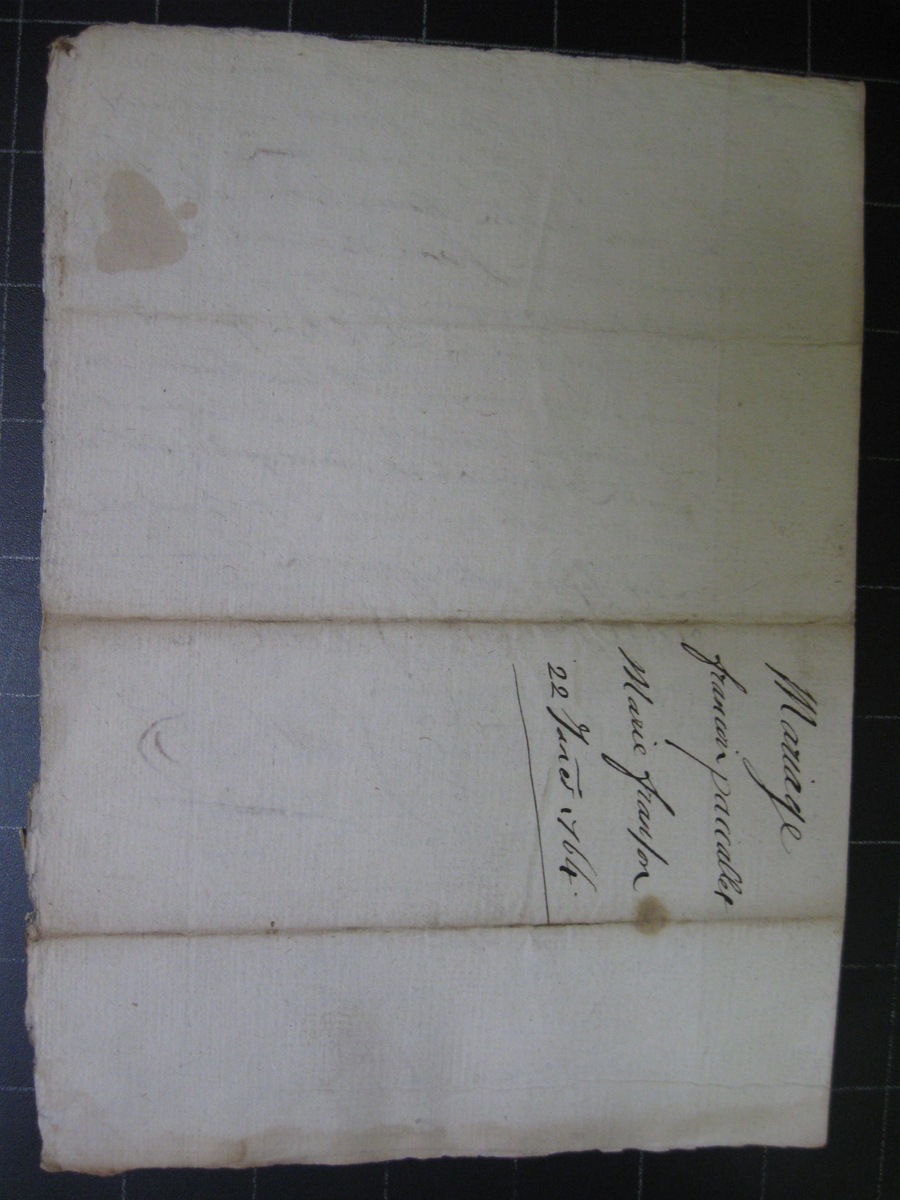 Mariage
francoin paccallet
Marie franson
22 Janer 1764.